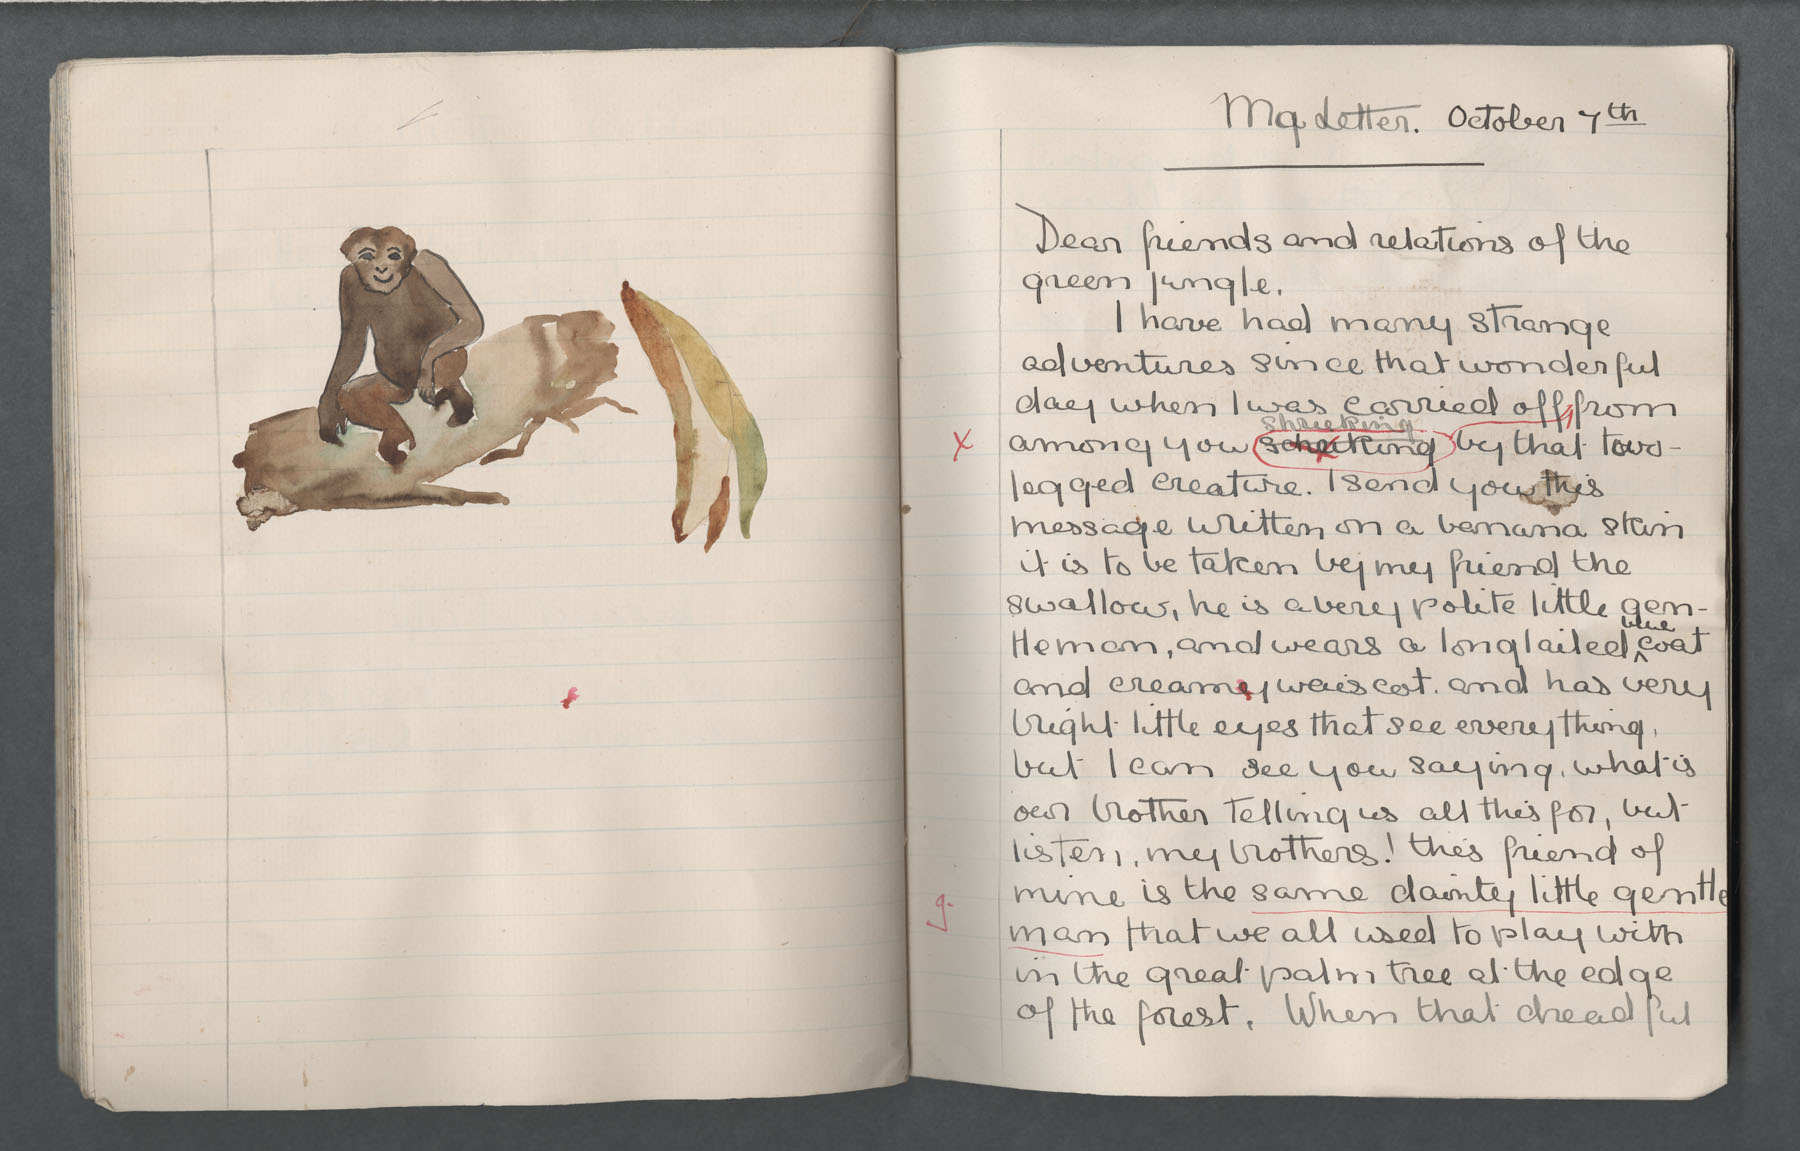 My Letter. October 7th
Dear friends and relations of the
green jungle.
I have had many strange
adventures since that wonderful
day when I was carried off, from
shrieking
among you by that two-
legged creature. I send you this
message written on a banana skin
it is to be taken by my friend the
swallow, he is a very polite little gen-
blue
tleman, and wears a longtailed ^ coat
and creamy waiscot. and has very
bright little eyes that see everything,
but I can see you saying, what is
our brother telling us all this for, but
listen, my brothers! this friend of
g.
mine is the same dainty little gentle
man that we all used to play with
in the great palm tree at the edge
of the forest. When that dreadful